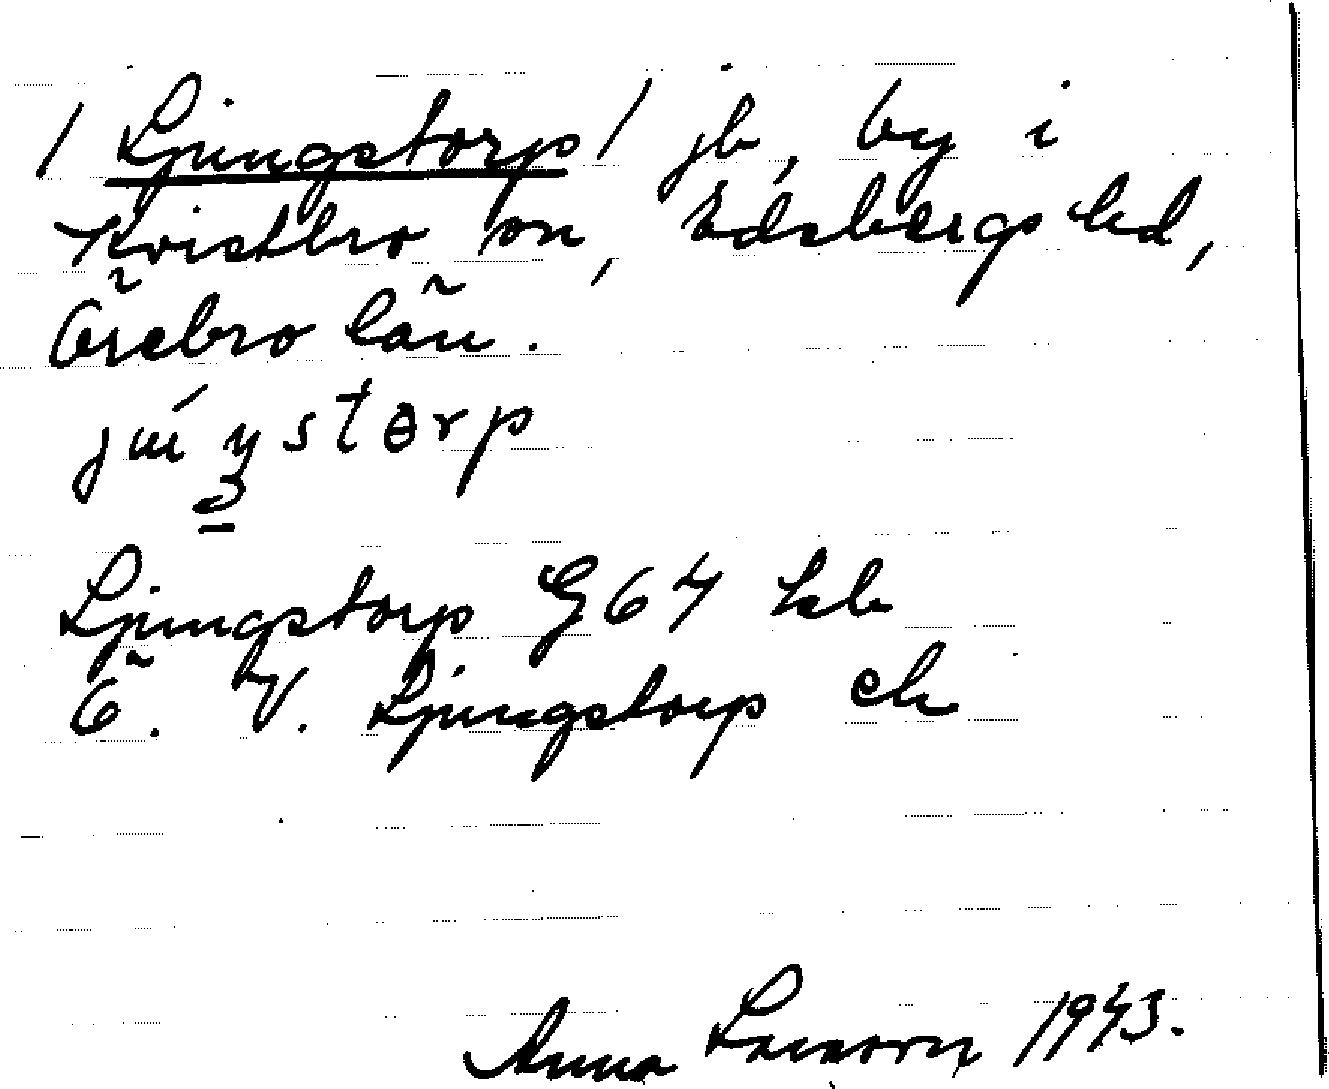 / Ljungstorp / jb, by i
Kvistbro sn, Edsbergs hd,
Örebro län.
Ljungstorp G 64 hsb
Ö. V. Ljungstorp ek
Anna 1943.